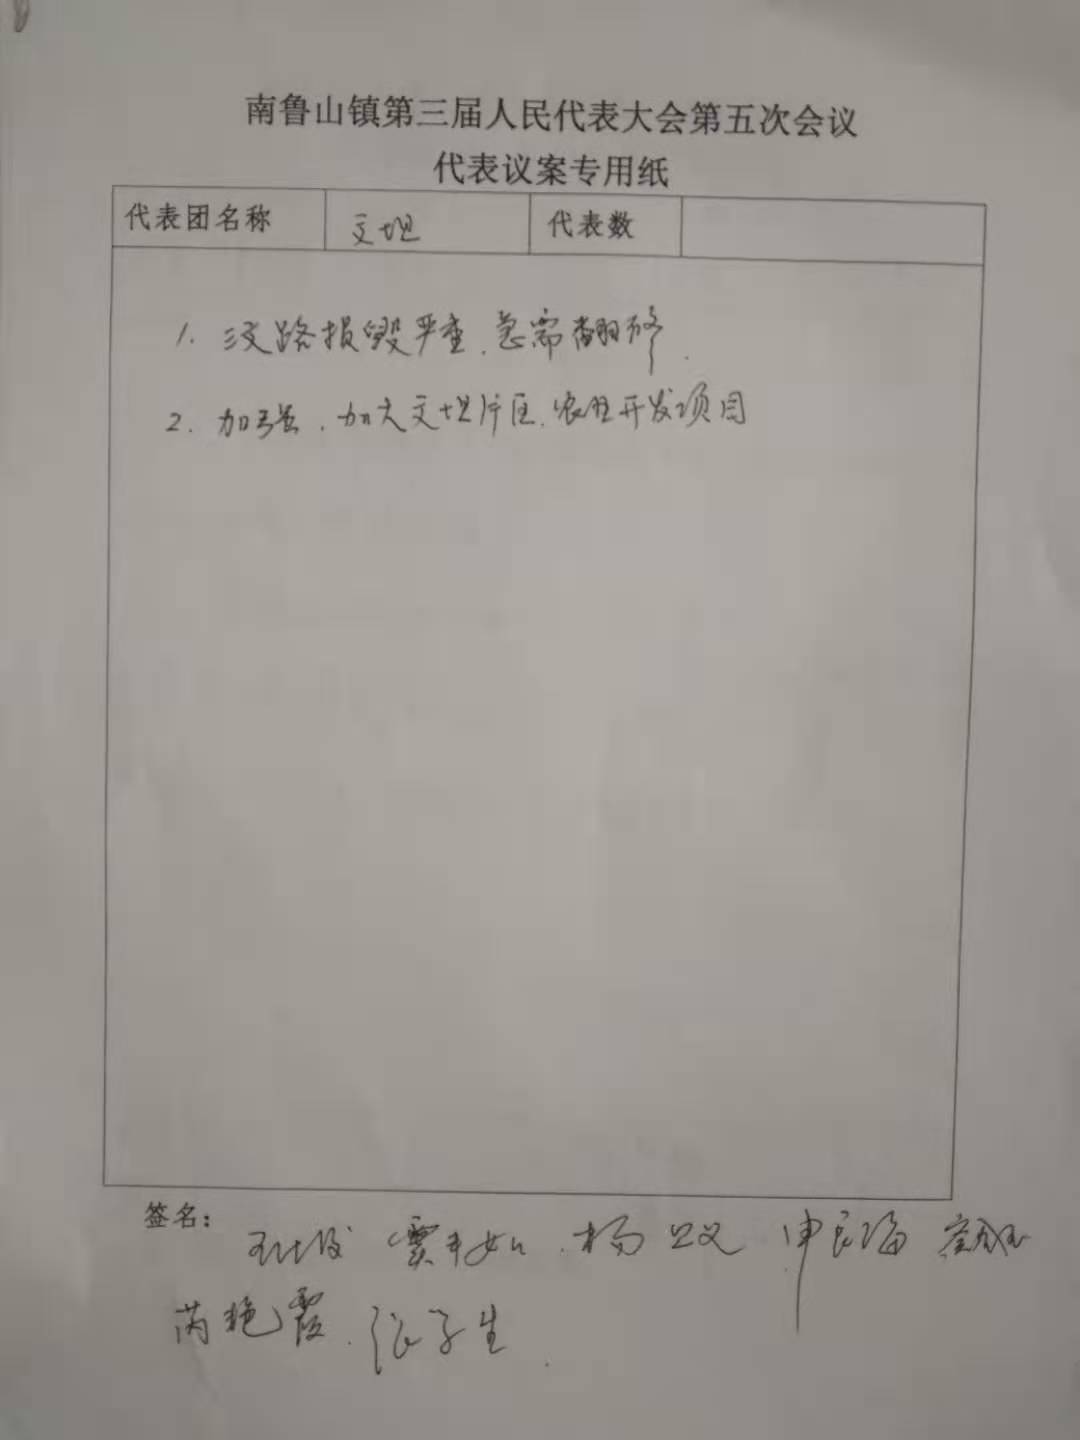 南鲁山镇第三届人民代表大会第五次会议
代表议案专用纸
代表团名称 文坦 代表数
1. 路损毁严重、急需翻修.
2. 加强、加大文坦片区、农业开发项目
签名：
杨 申
芮艳霞、张学生.